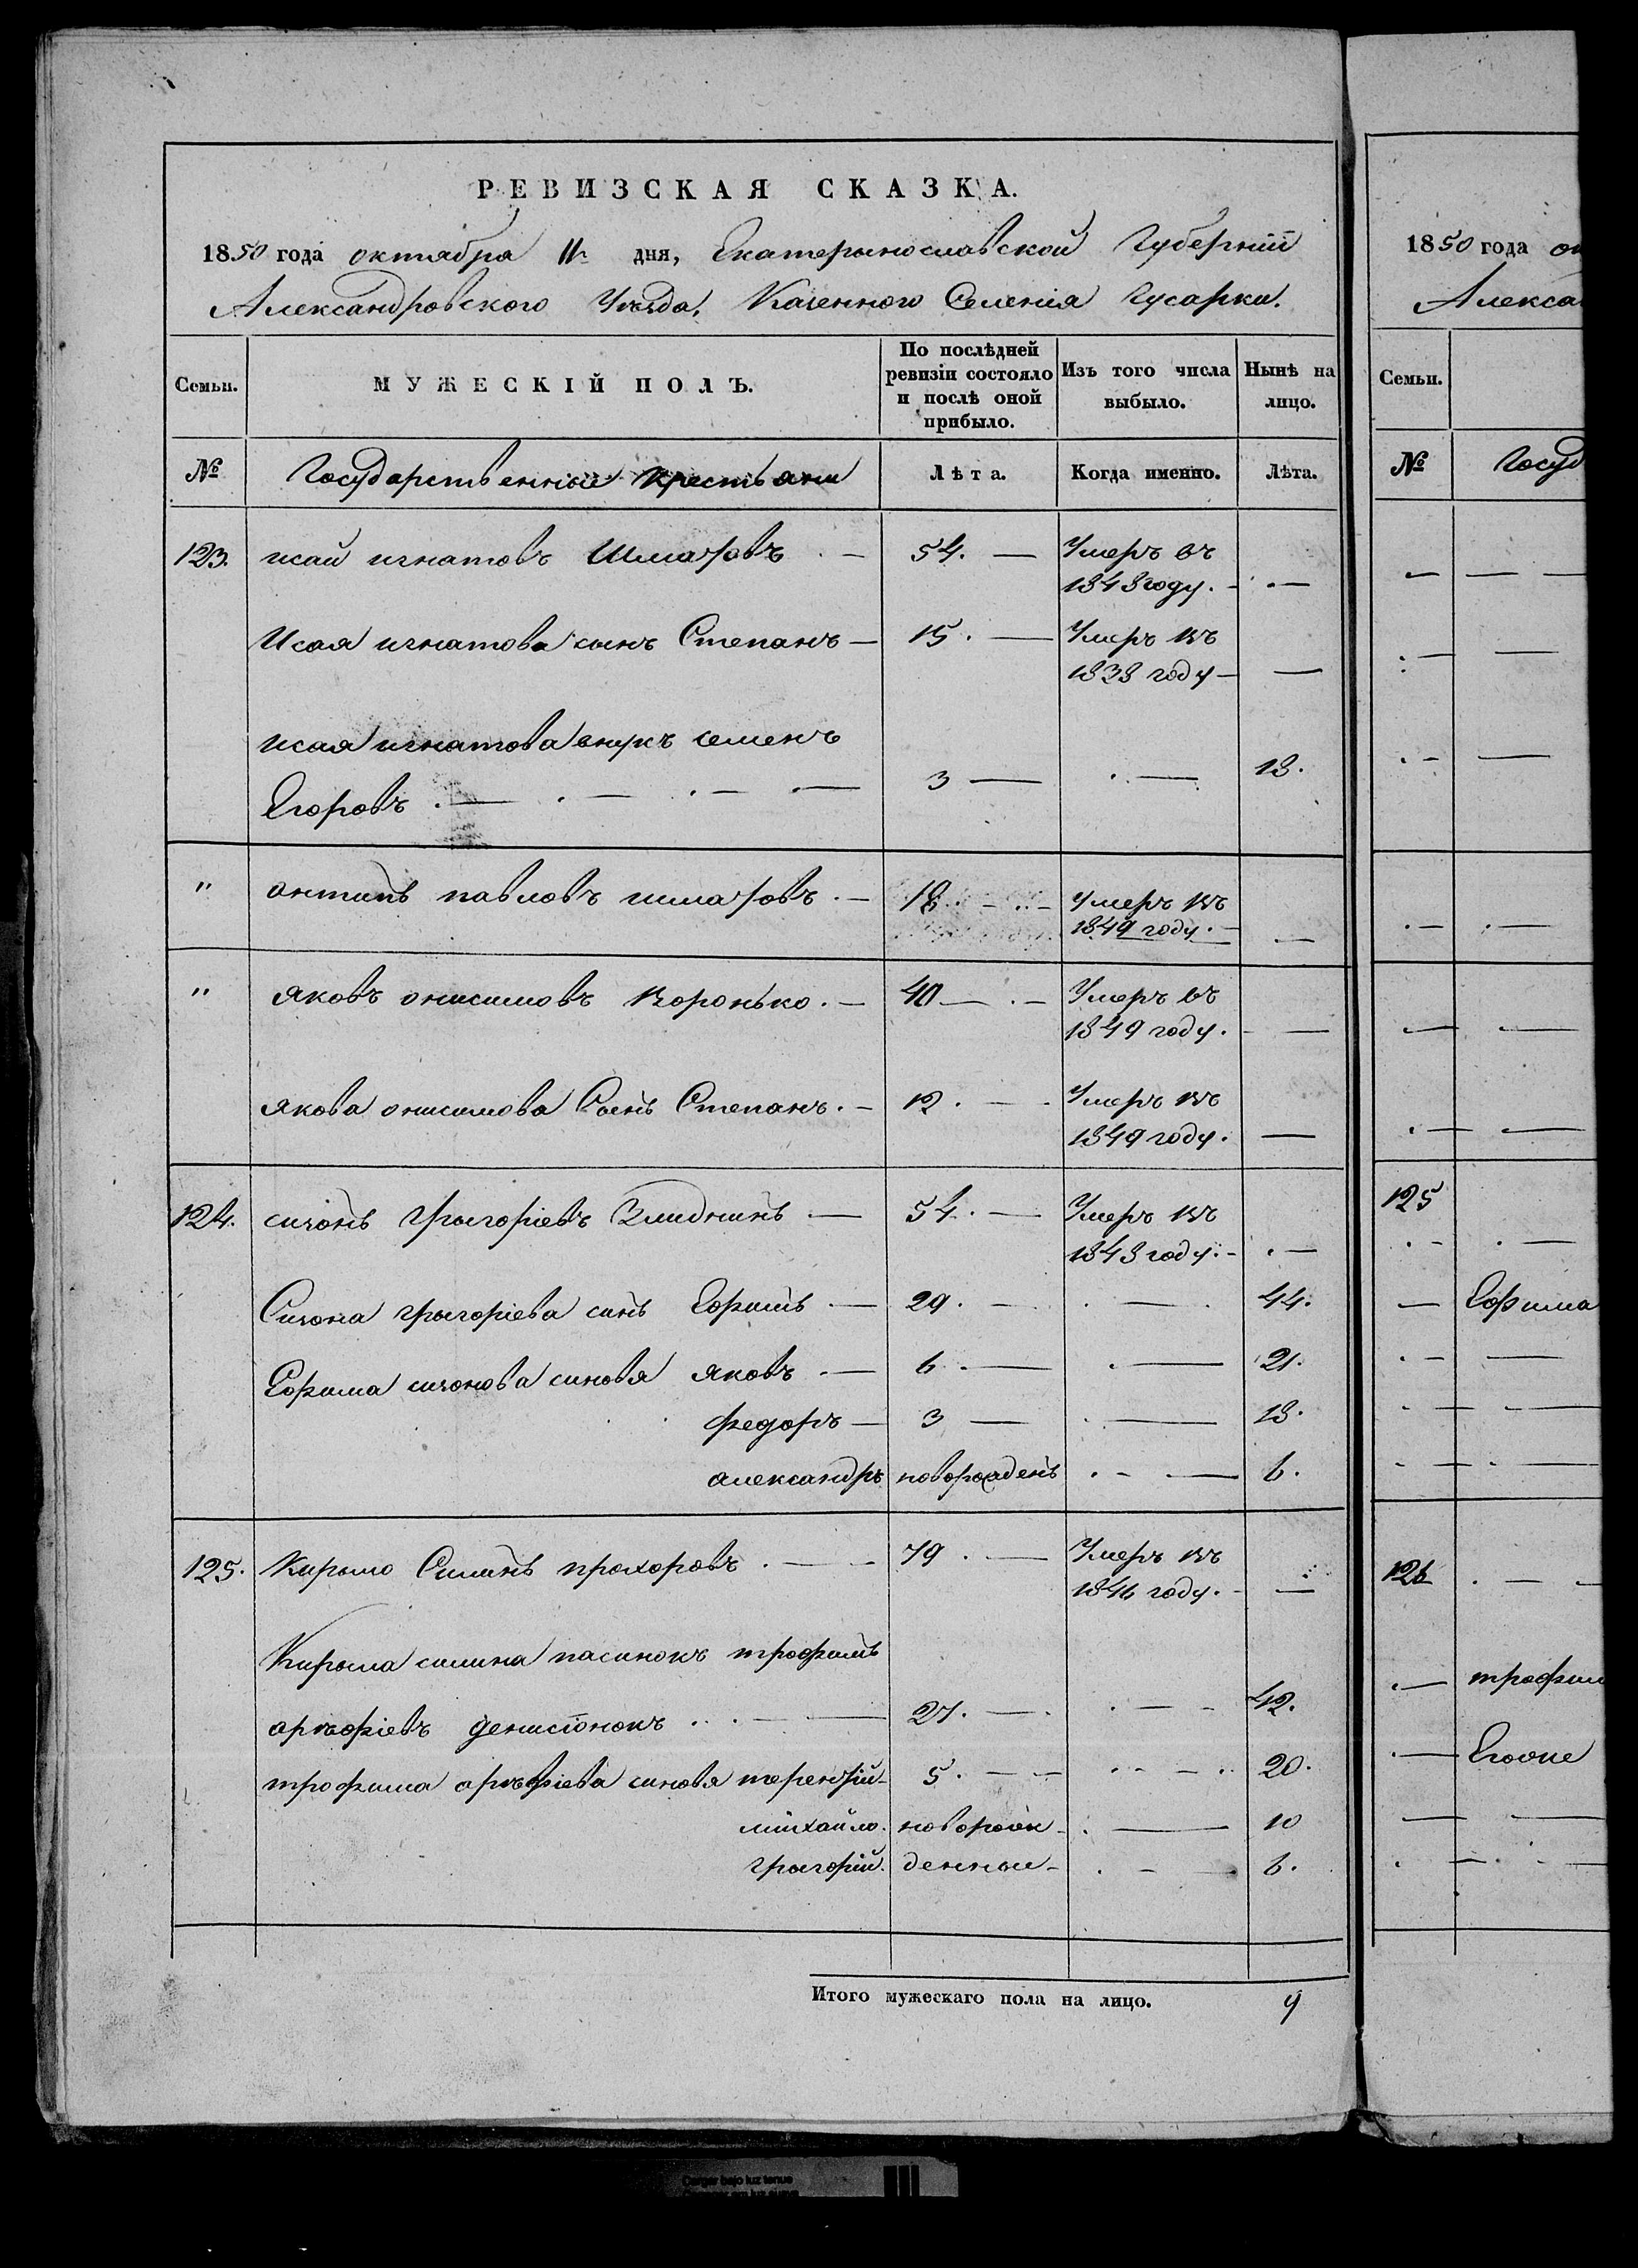 РЕВИЗСКАЯ СКАЗКА.
1850 года октабра 11 дня, Екатерынославской Губерніи
Александровского Уезда, Казенного Селенія Гусарки.
Семьи. МУЖЕСКІЙ ПОЛЪ. По послѣдней ревизіи состояло и послѣ оной прибыло. Изъ того числа выбыло. Нынѣ на лицо.
№ Государственніе крестьяни Лѣта. Когда именно. Лѣта.
123. исай игнатовъ 54. — Умеръ въ
1848 году. — —
Исая игнатова сынъ Степанъ — 15. — Умеръ въ
1838 году — —
исая игнатова внукъ семенъ
Егоровъ . — . — . — . — 3 — . — 18.
" антипъ павловъ . — 18. — Умеръ въ
1849 году. — —
" яковъ онисимовъ Воронько. — 40 — . — Умеръ въ
1849 году. — —
якова онисимова Сынъ Степанъ. — 12. — Умеръ въ
1849 году. —
124. сизонъ Грыгоріевъ . — 54. — Умеръ въ
1848 году. — . —
Сизона грыгоріева синъ Ефимъ . — 29. — . — 44.
Ефима сизонова синовя яковъ . — 6 . — . — 21.
федоръ — 3 — . — 18.
александръ новорожденъ . - — 6.
125. Кирыло Силинъ прохоровъ . — 79 . — Умеръ въ
1846 году. — —
Кирыла силина пасинокъ трофимъ
арефіевъ денисіонокъ . . . — — 27. — . . — 42.
трофима арефіева синовя терентій — 5. — — . . — . . 20.
михайло. новорож- . — 10
грыгорій. денныи — . - — 6.
Итого мужескаго пола на лицо. 9
1850 года ок
Алекса
Семьи.
№ Госуд
125
— Ефима
126
— трофим
— Егоопе